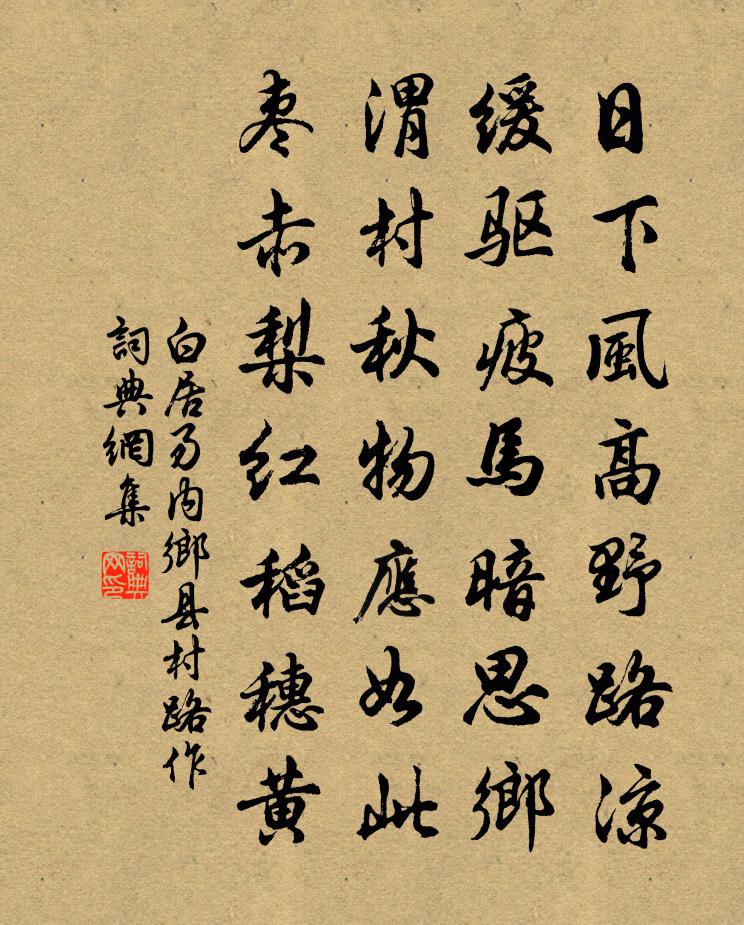 日下風高野路涼
缓驱疲馬暗思鄉
渭村秋物應如此
枣赤梨红稻穗黄
白居易内鄉县村路作
詞典網集
詞典網印